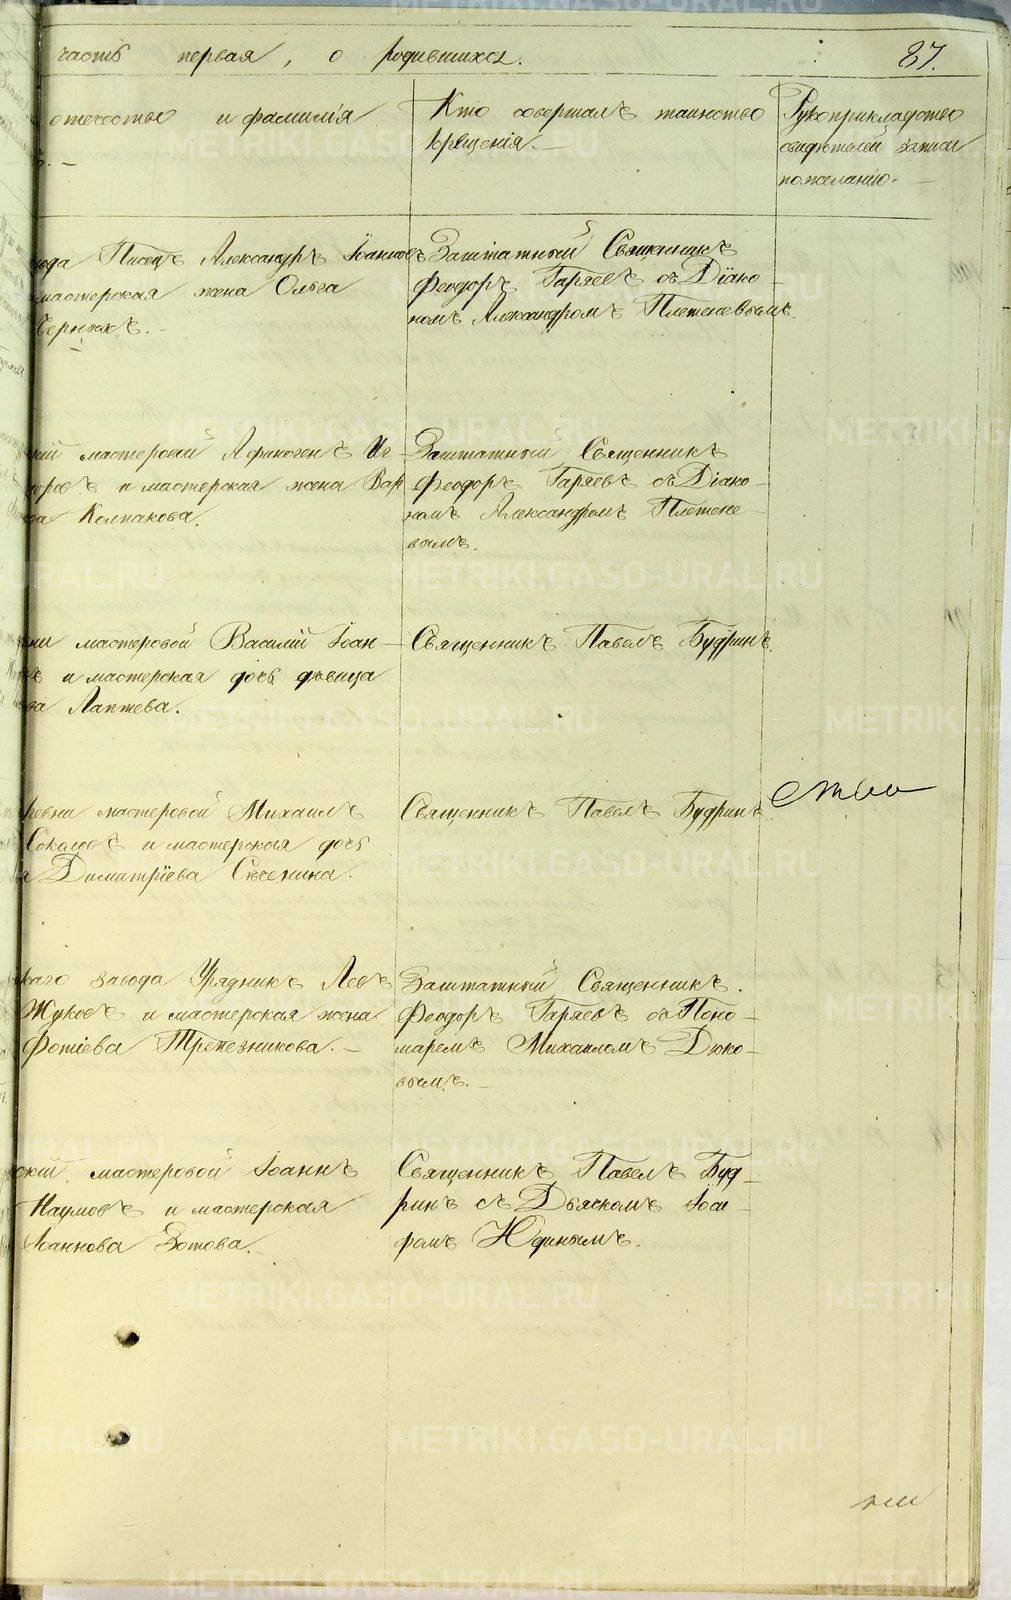 часть первая, о родившихся.
87.
отчество и фамилія
Кто совершалъ таинство
крещенія. —
Рукоприкладство
свидѣтелей записи
по желанію. —
вода Писецъ Александръ Іоанновъ
мастерская жена Ольга
Черныхъ. —
Заштатный Священникъ
Феодоръ Гаряевъ съ Діако-
номъ Александромъ Плетеневымъ.
кій мастеровой Афиногенъ Иг-
и мастерская жена Вар
ва Колпакова.
Заштатный Священникъ
Феодоръ Гаряевъ съ Діако-
номъ Александромъ Плетене-
вымъ.
ни мастеровой Василій Іоан-
ъ и мастерская дочь дѣвица
ва Лаптева.
Священникъ Павелъ Будринъ.
ревни мастеровой Михаилъ
Соколовъ и мастерская дочь
а Димитріева Сѣченина.
Священникъ Павелъ Будринъ.
каго завода Урядникъ Левъ
Жуковъ и мастерская жена
Фотіева Трапезникова. —
Заштатный Священникъ
Феодоръ Гаряевъ съ Поно-
маремъ Михаиломъ Дюко-
вымъ. —
скій мастеровой Іоаннъ
Наумовъ и мастерская
Іоаннова Зотова.
Священникъ Павелъ Буд-
ринъ съ Дьячкомъ Іоси-
фомъ Юдинымъ.
METRIKI.GASO-URAL.RU